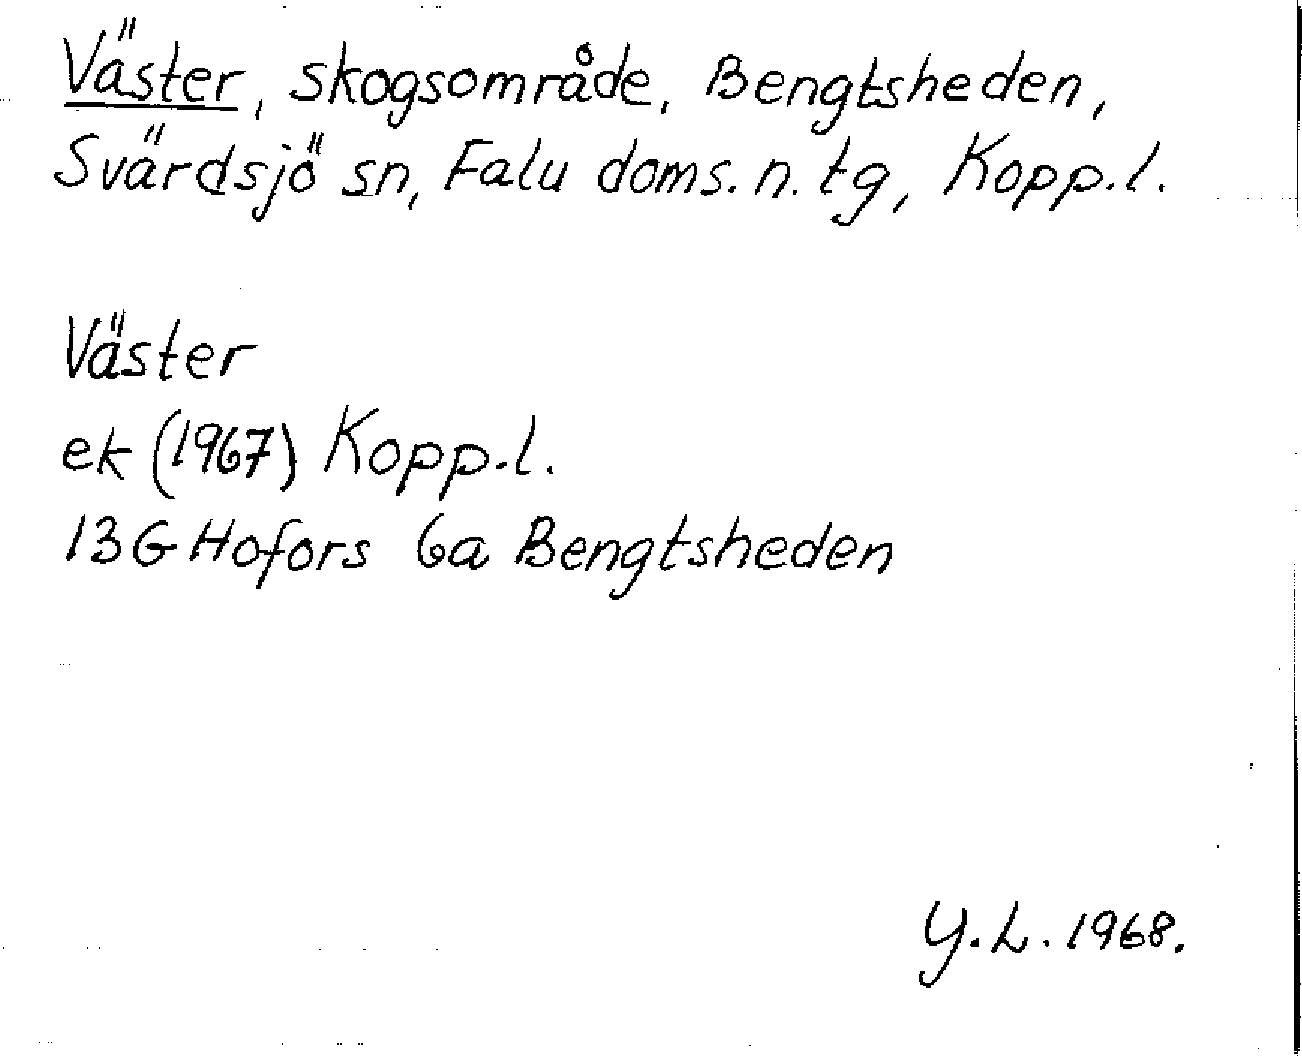 Väster, skogsområde, Bengtsheden,
Svärdsjö sn, Falu doms. n. tg, Kopp.l.
Väster
ek (1967) Kopp.l.
13G Hofors 6a Bengtsheden
Y.L. 1968.